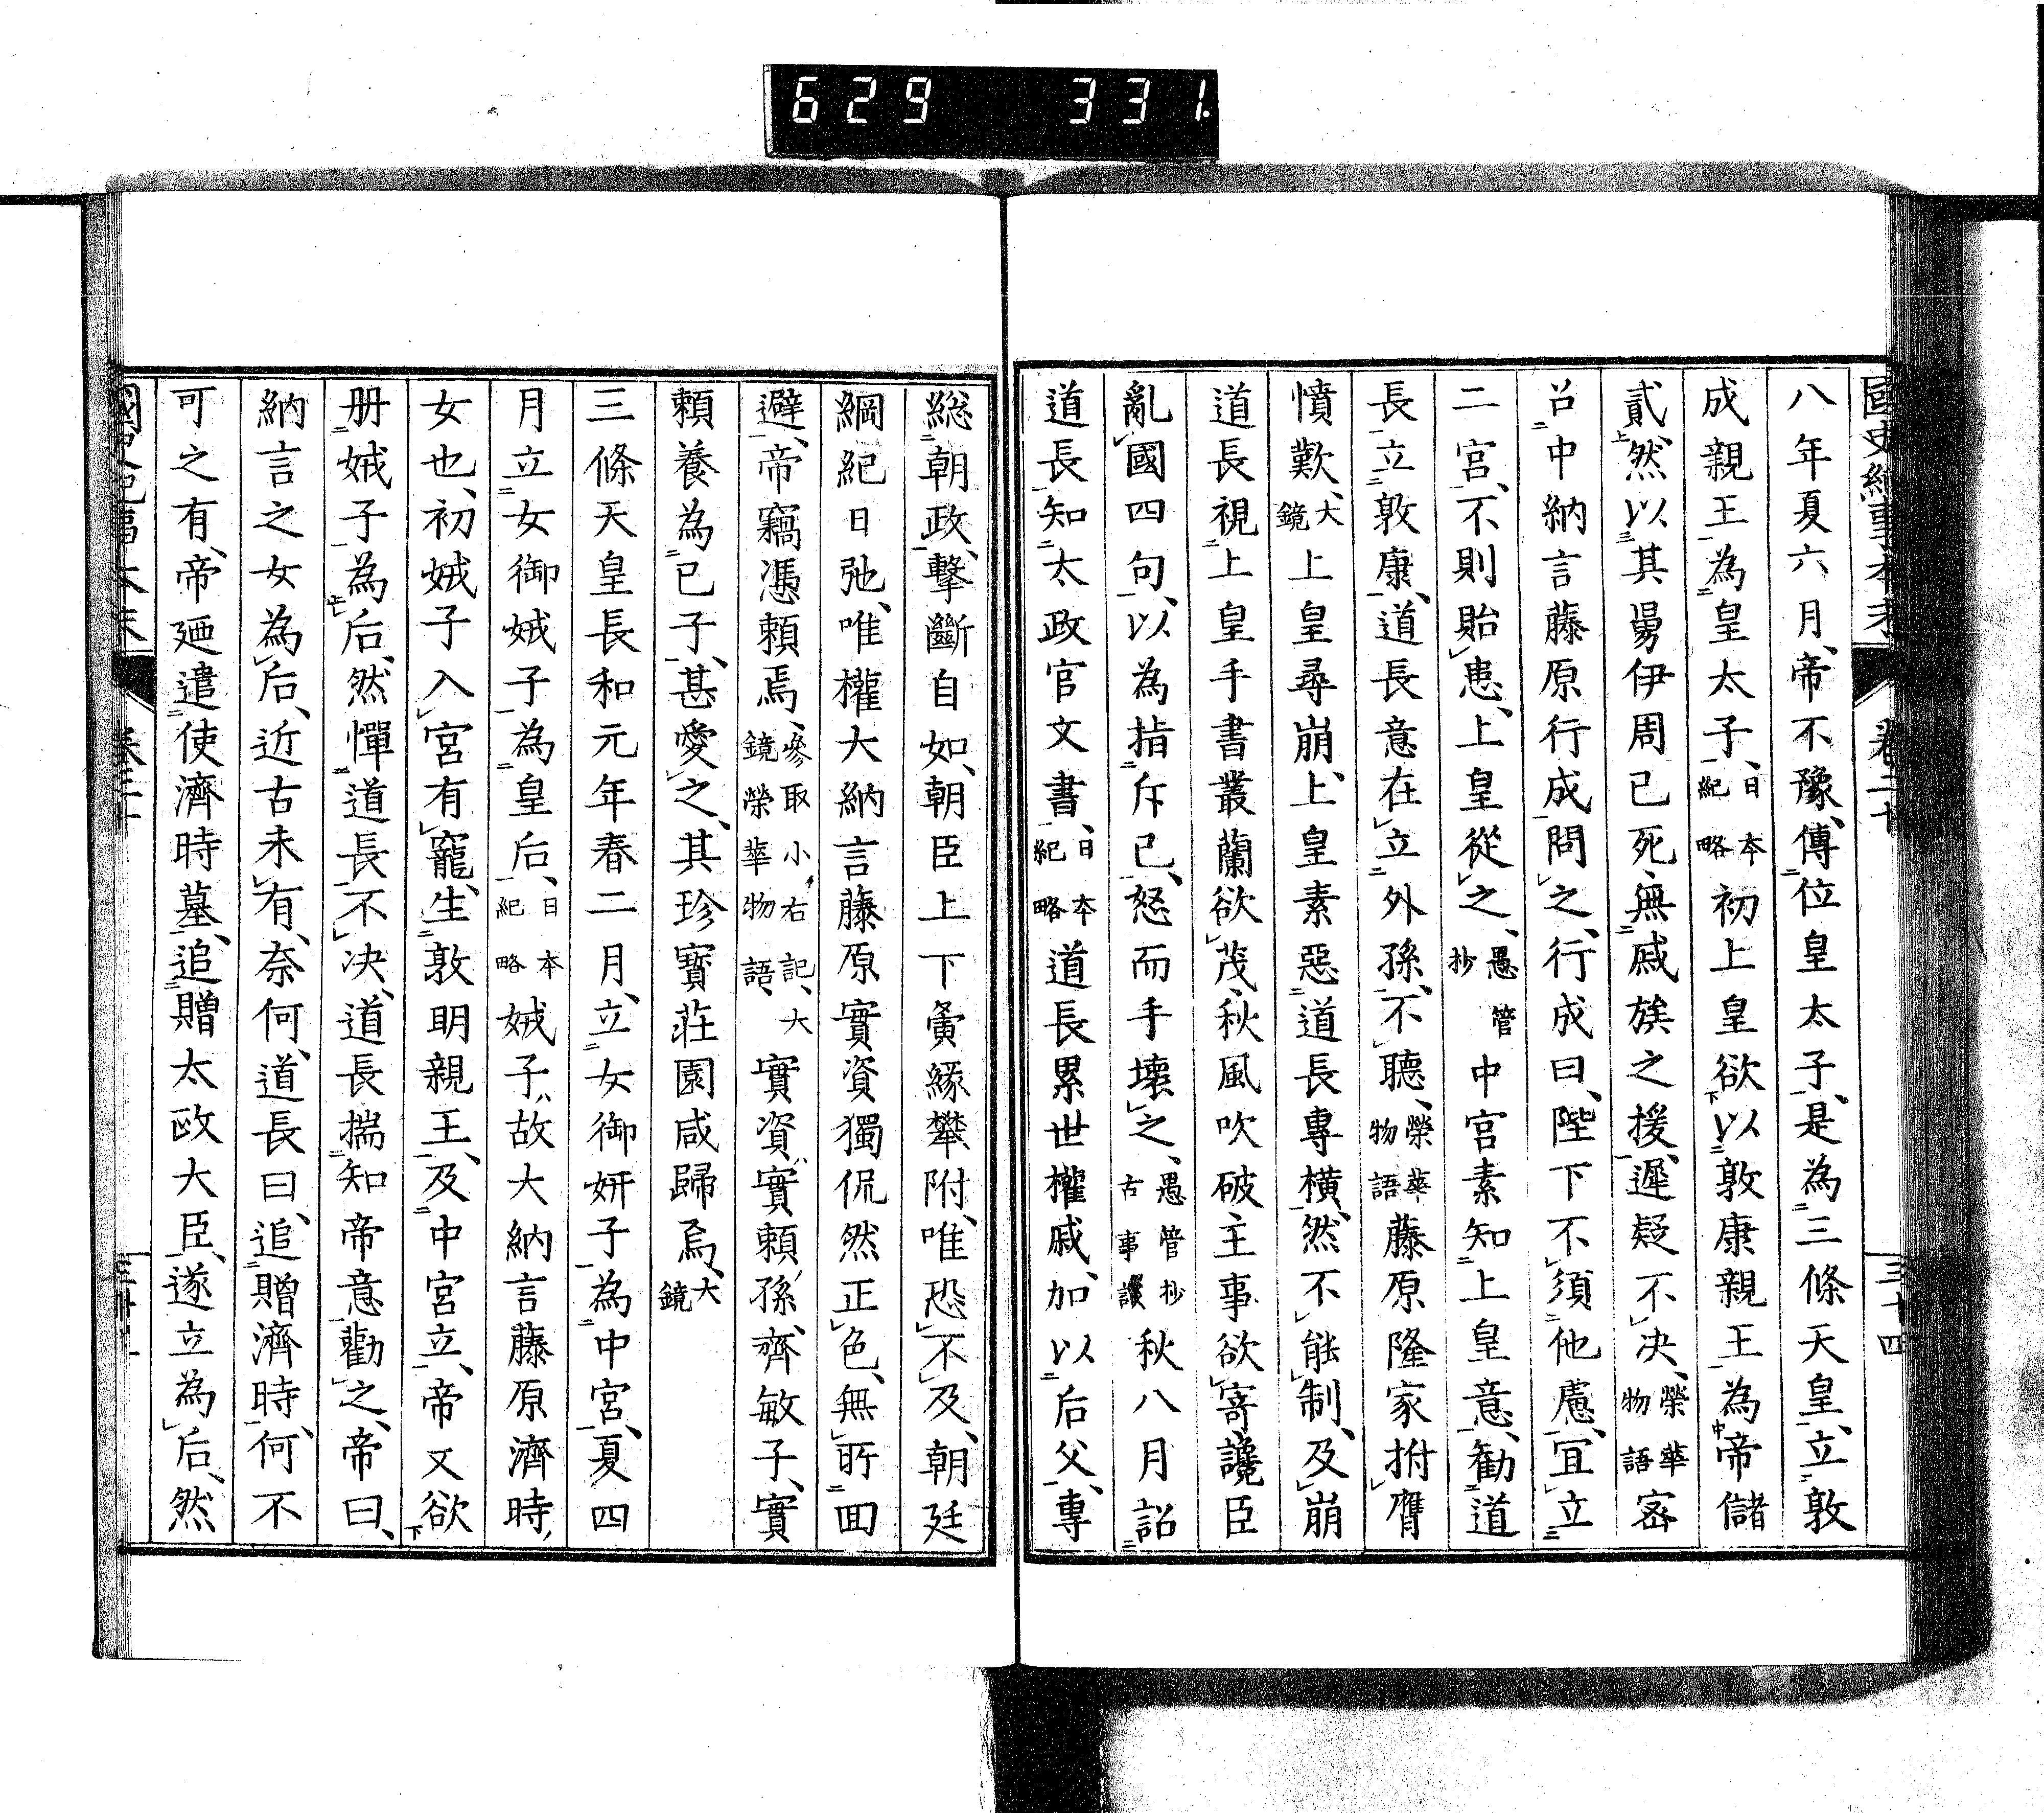 629 331.
國史紀事本末 卷二十 三十四
八年夏六月、帝不豫、傳位皇太子、是為三條天皇、立敦
成親王為皇太子、日本紀略初上皇欲以敦康親王為帝儲
貳、然以其舅伊周已死、無戚族之援、遲疑不決、榮華物語密
召中納言藤原行成問之、行成曰、陛下不須他慮、宜立
二宮、不則貽患、上皇從之、愚管抄中宮素知上皇意、勸道
長立敦康、道長意在立外孫、不聽、榮華物語藤原隆家拊膺
憤歎、大鏡上皇尋崩、上皇素惡道長專橫、然不能制、及崩
道長視上皇手書叢蘭欲茂、秋風吹破、主事欲寄、讒臣
亂國四句、以為指斥己、怒而手壞之、愚管抄古事談秋八月詔
道長知太政官文書、日本紀略道長累世權戚、加以后父、專
総朝政、擊斷自如、朝臣上下夤緣攀附、唯恐不及、朝廷
綱紀日弛、唯權大納言藤原實資獨侃然正色、無所回
避、帝竊憑頼焉、參取小右記、大鏡榮華物語、實資、實頼孫、齊敏子、實
頼養為己子、甚愛之、其珍寶莊園咸歸焉、大鏡
三條天皇長和元年春二月、立女御妍子為中宮、夏四
月立女御娍子為皇后、日本紀略娍子、故大納言藤原濟時
女也、初娍子入宮有寵、生敦明親王、及中宮立、帝又欲
册娍子為后、然憚道長不決、道長揣知帝意勸之、帝曰、
納言之女為后、近古未有、奈何、道長曰、追贈濟時、何不
可之有、帝廼遣使濟時墓、追贈太政大臣、遂立為后、然